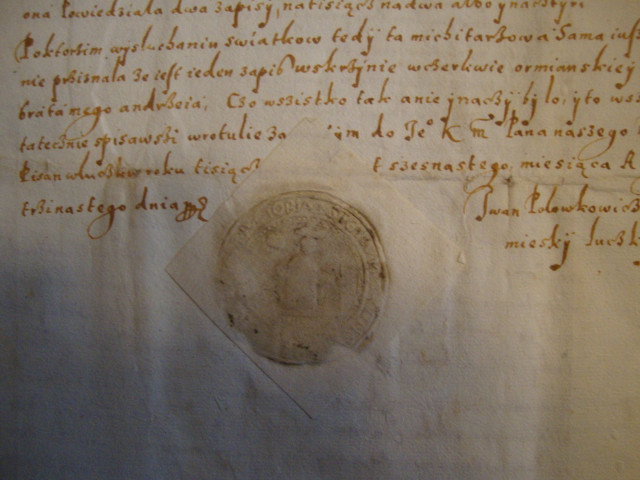 ona Powiedziała dwa zapisy, na tisiącz na dwa albo
Po ktorim wysłuchaniu swiatkow tedy ta michitarzowa Sama
nie prziznała ze iest ieden zapis w skrzynie w czerkwie ormianskiey
brata mego andrzeia, Czo wszistko tak a nie ynaczy było, y to
spisawski w rotulie za do Je° K M Pana naszego
Pisan w łuczku roku tisiącz szesnastego, miesiąca
trzinastego dnia
Iwan Połowkowicz
mieski łuczki